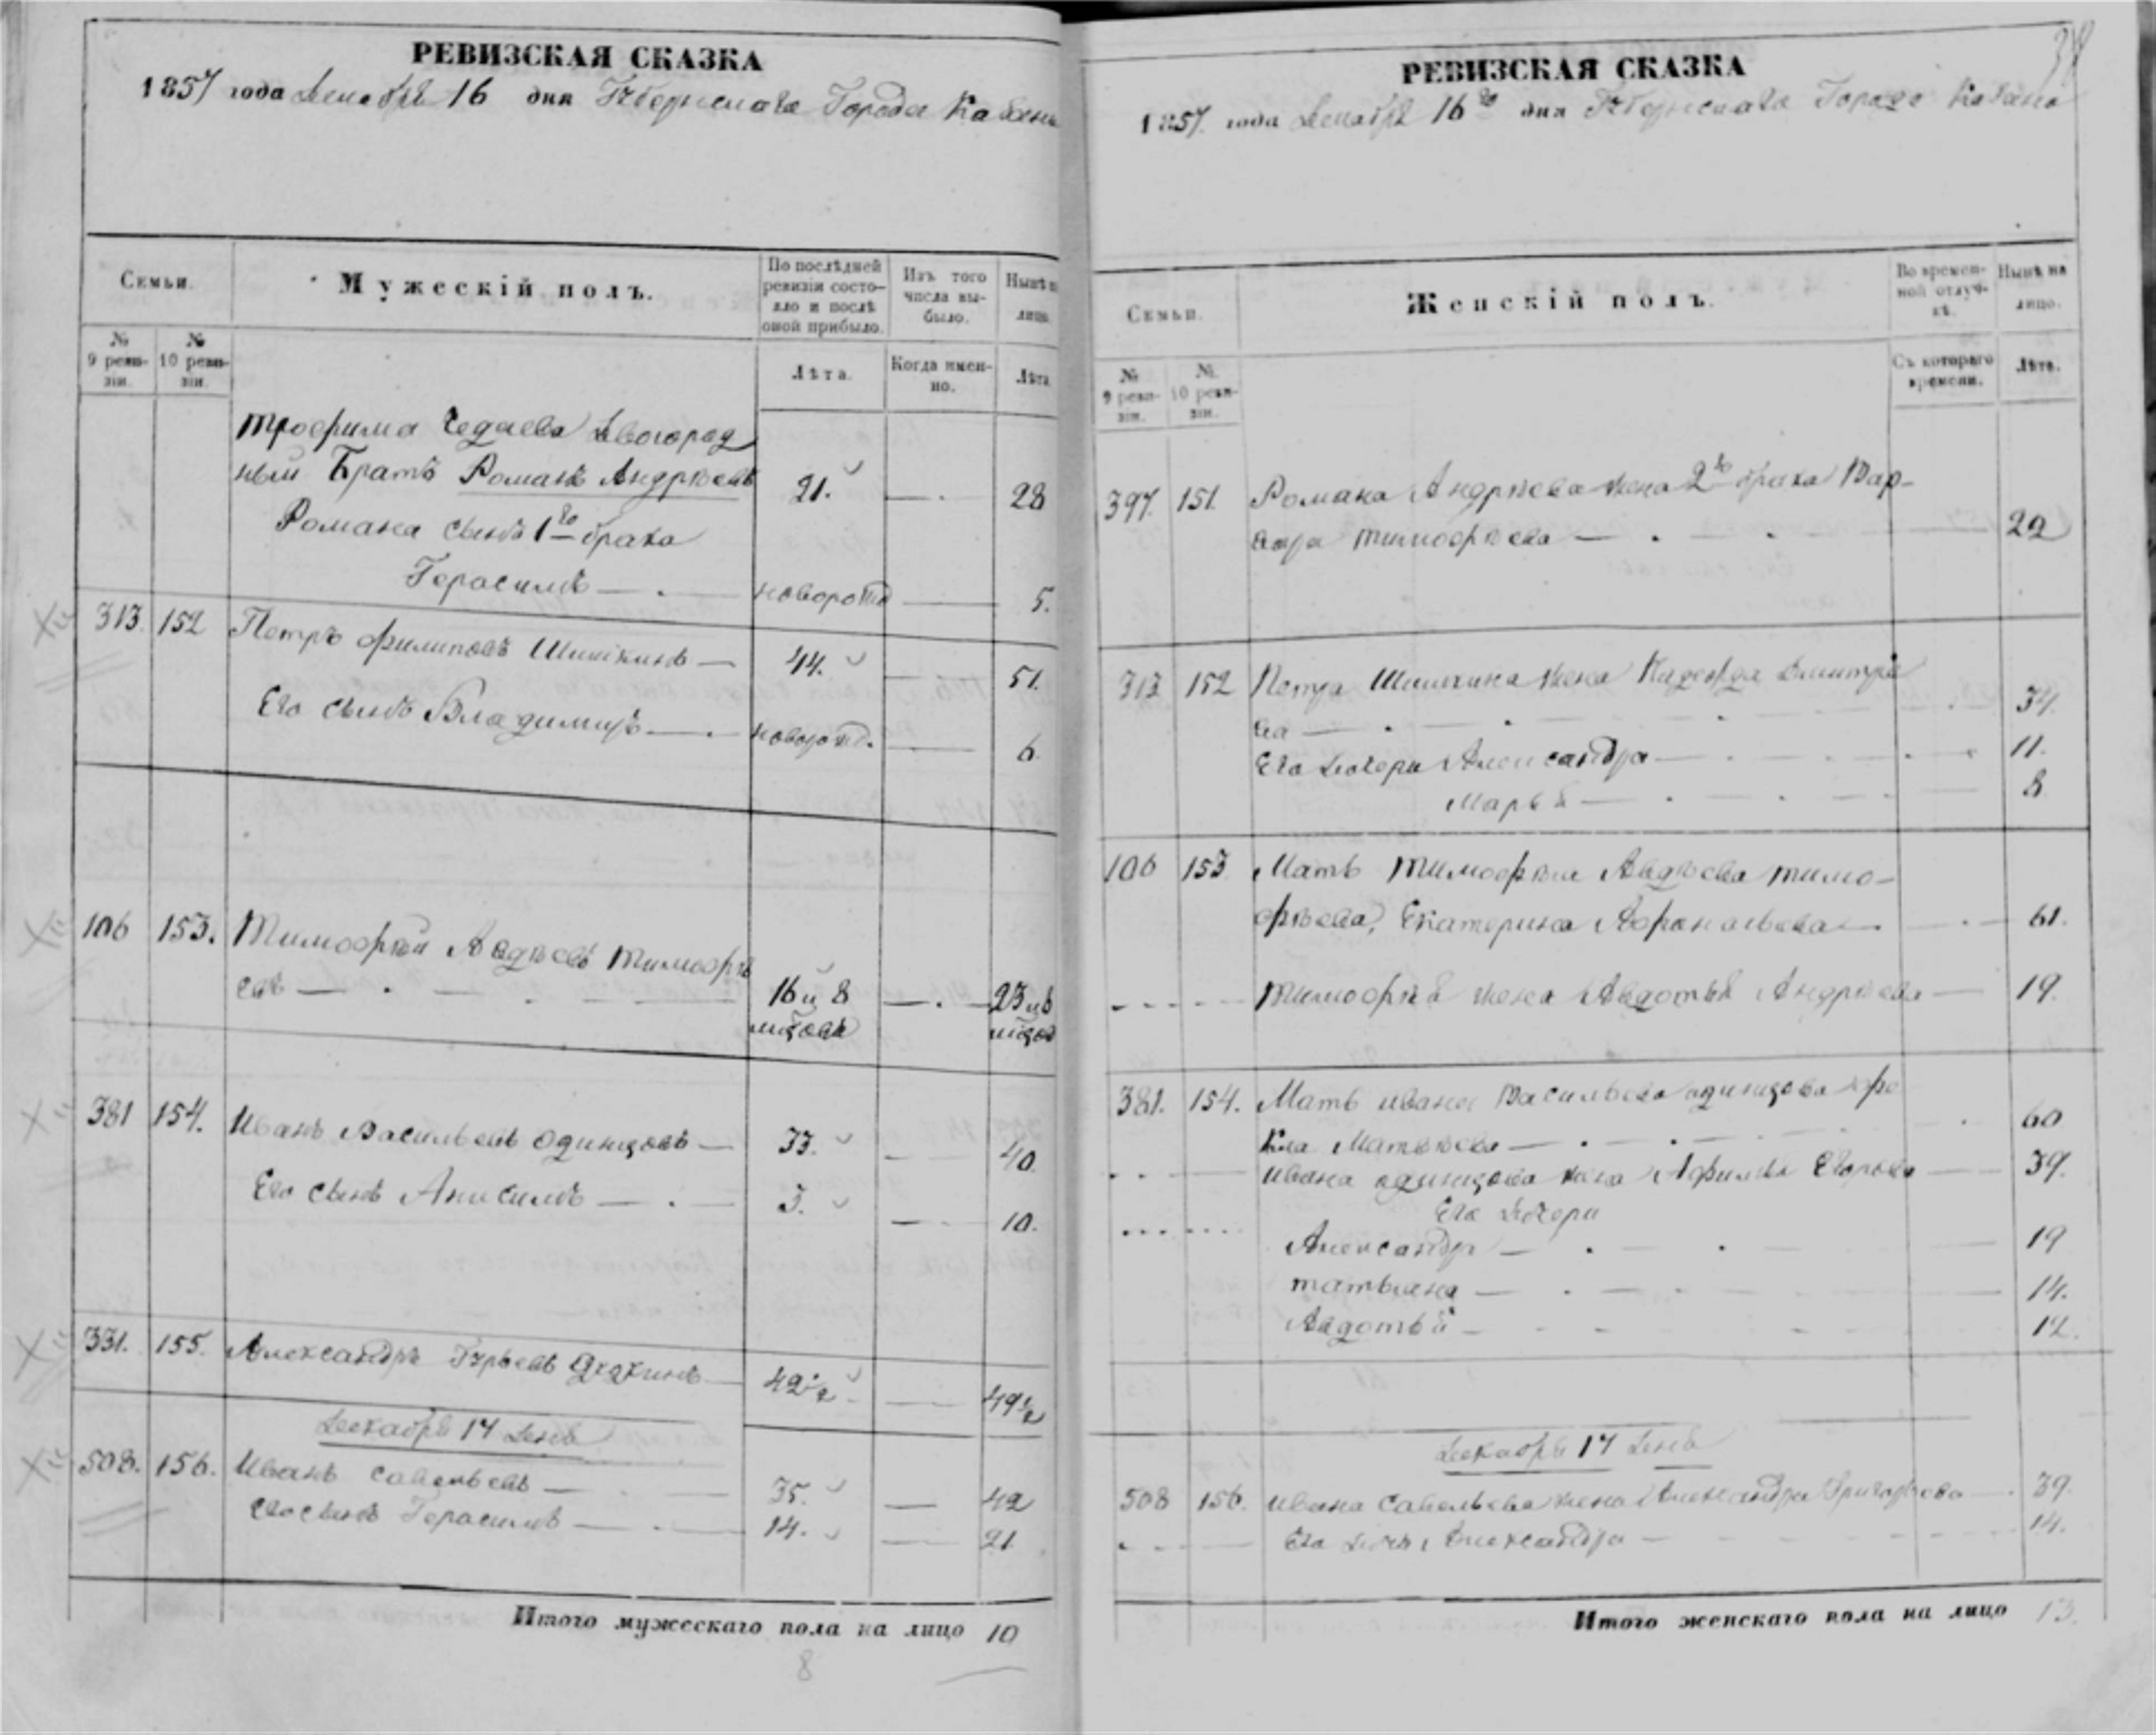 РЕВИЗСКАЯ СКАЗКА
1857 года Декабря 16 дня Губернскаго Города Казани
Семьи.
Мужескій полъ.
По послѣдней ревизіи состояло и послѣ оной прибыло.
Изъ того числа выбыло.
Нынѣ на лицо.
№ 9 ревизіи.
№ 10 ревизіи.
Лѣта.
Когда именно.
Лѣта
Трофима Чедаева Двоюрод
ный Братъ Романъ Андрѣевъ 21. — 28
Романа сынъ 1го брака
Герасимъ — новорожд — 5.
313. 152 Петръ Филиповъ Шишкинъ — 44. — 51.
Его сынъ Владимиръ — новорожд. — 6.
106 153. Тимофѣй Авдѣевъ Тимофѣ
евъ — 16 и 8 мѣсяцовъ — 23 и 8 мѣсяцов
381 154. Иванъ Васильевъ Одинцовъ — 33. — 40.
Его сынъ Анисимъ — 3. — 10.
331. 155. Александръ Гурьевъ — 42½ — 49½
Декабря 17 Дня
508. 156. Иванъ Савельевъ — 35. — 42
Его сынъ Герасимъ — 14. — 21
Итого мужескаго пола на лицо 10
8
РЕВИЗСКАЯ СКАЗКА
1857 года Декабря 16го дня Губернскаго Города Казани
Семьи.
Женскій полъ.
Во временной отлучкѣ.
Нынѣ на лицо.
№ 9 ревизіи.
№ 10 ревизіи.
Съ котораго времени.
Лѣта.
397. 151. Романа Андрѣева жена 2го брака Вар-
вара Тимофѣева — 22
313 152 Петра Шишкина жена Надежда Дмитріе
ва — 34.
Его Дочери Александра — 11.
Марья — 8
106 153 Мать Тимофѣя Авдѣева Тимо-
фѣева, Екатерина Афанасьева — 61.
Тимофѣя жена Авдотья Андрѣева — 19.
381. 154. Мать Ивана Васильева Одинцова Фе
кла Матвѣева — 60
Ивана Одинцова жена Афимья Егорова — 39.
Его Дочери
Александра — 19
Татьяна — 14.
Авдотья — 12.
Декабря 17 Дня
508 156. Ивана Савельева жена Александра Григорьева — 39.
Его дочь Александра — 14.
Итого женскаго пола на лицо 13.